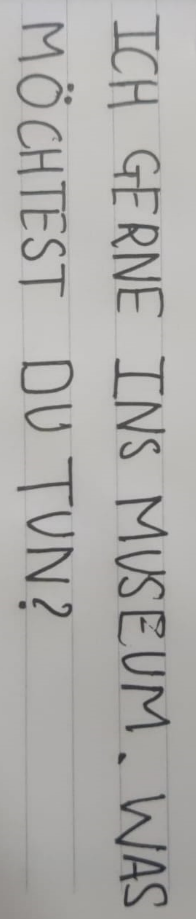 ICH GERNE INS MUSEUM. WAS
MÖCHTEST DU TUN?